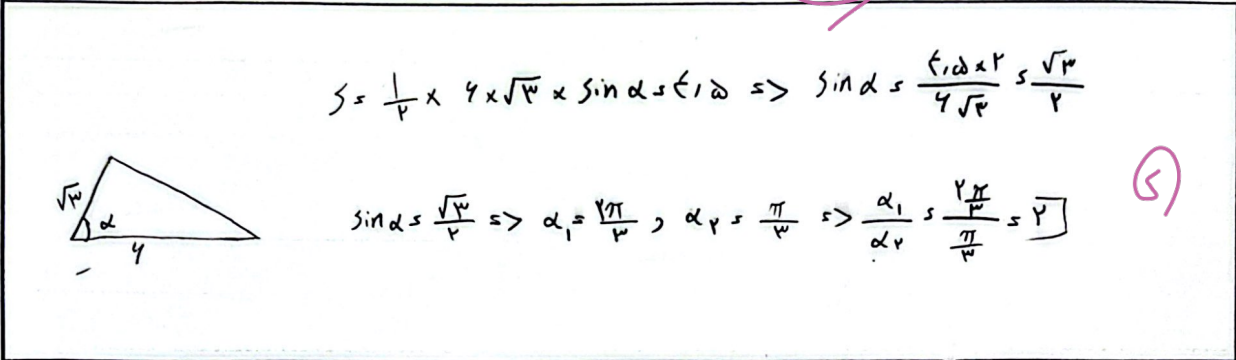 S = ۱/۲ × ۶ × √۳ × Sin α = ۴,۵ => Sin α = ۴,۵×۲/۶√۳ = √۳/۲
√۳
α
۶
Sin α = √۳/۲ => α₁ = ۲π/۳ , α₂ = π/۳ => α₁/α₂ = (۲π/۳)/(π/۳) = ۲